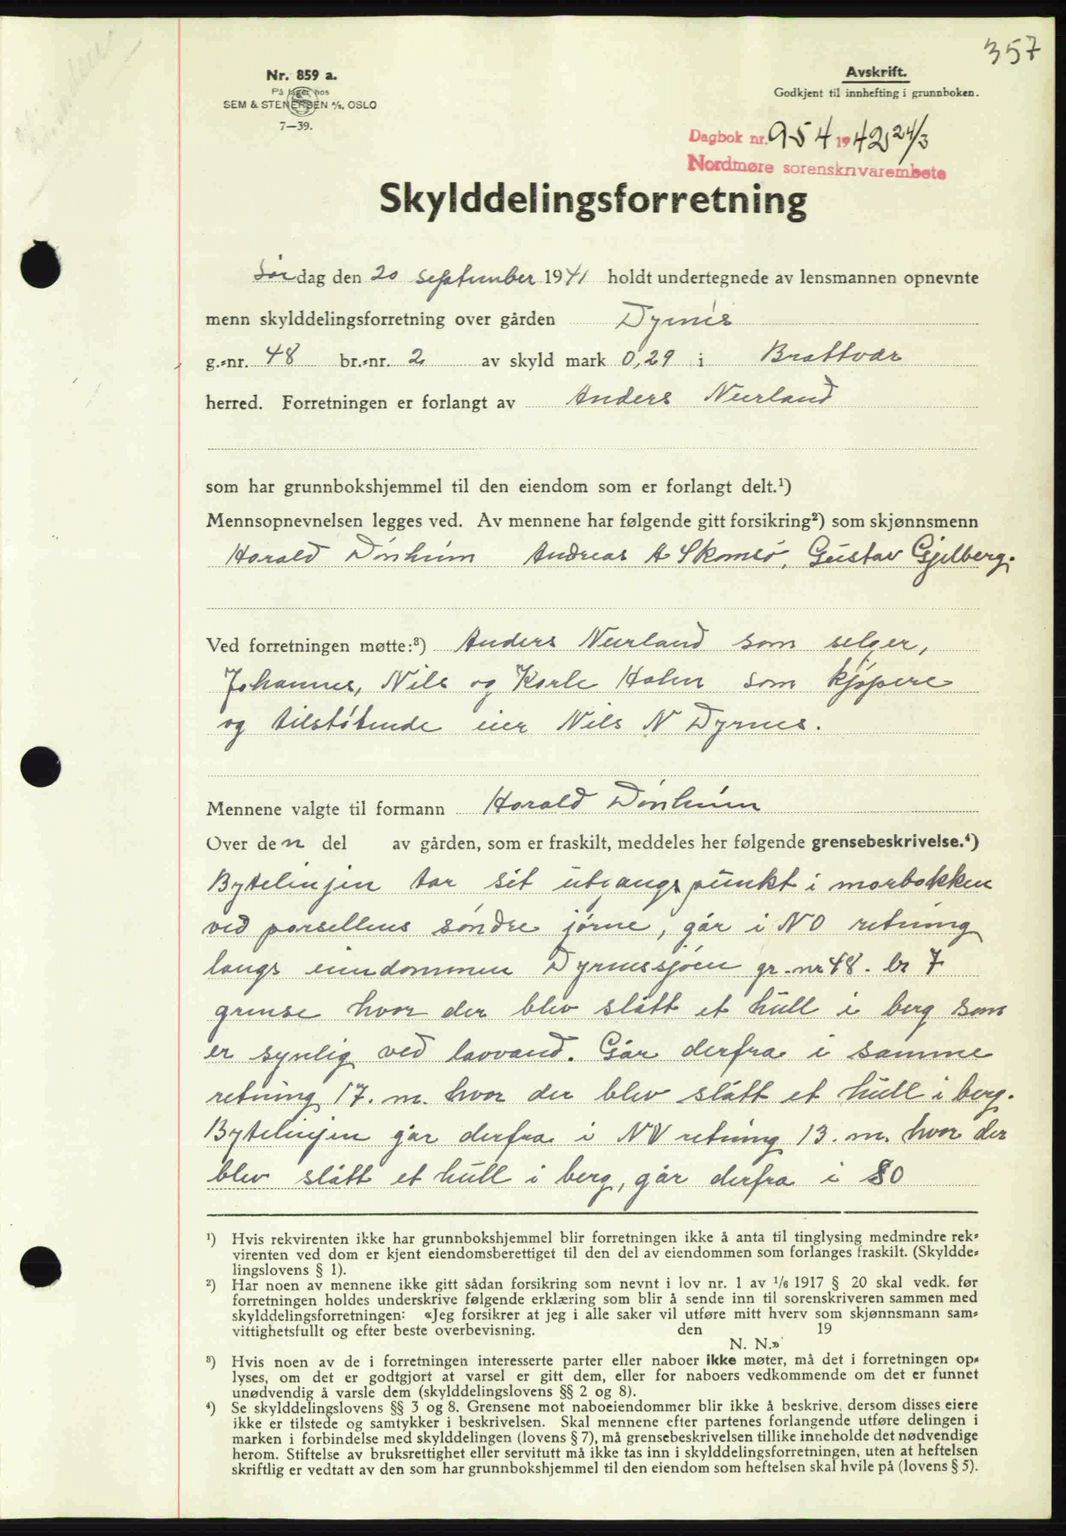 357
Nr. 859 a.
På lager hos
SEM & STENERSEN A/S, OSLO
7—39.
Avskrift.
Godkjent til innhefting i grunnboken.
Dagbok nr. 954 1942 24/3
Nordmøre sorenskrivarembete
Skylddelingsforretning
Lørdag den 20 september 1941 holdt undertegnede av lensmannen opnevnte
menn skylddelingsforretning over gården Dyrnes
g.-nr. 48 br.-nr. 2 av skyld mark 0,29 i Brattvær
herred. Forretningen er forlangt av Anders Neerland
som har grunnbokshjemmel til den eiendom som er forlangt delt.¹)
Mennsopnevnelsen legges ved. Av mennene har følgende gitt forsikring²) som skjønnsmenn
Harald Dønheim Andreas A Skomsø, Gustav Gjelberg.
Ved forretningen møtte:³) Anders Neerland som selger,
Johannes, Nils og Karle Holm som kjøpere
og tilstøtende eier Nils N Dyrnes.
Mennene valgte til formann Harald Dønheim
Over den del av gården, som er fraskilt, meddeles her følgende grensebeskrivelse.⁴)
Bytelinjen tar sit utgangspunkt i marbakken
ved parsellens søndre jørne, går i NO retning
langs eiendommen Dyrnessjøen gr.nr 48. br 7
grense hvor der blev slått et hull i berg som
er synlig ved lavvand. Går derfra i samme
retning 17. m. hvor der blev slått et hull i berg.
Bytelinjen går derfra i NV retning 13. m. hvor der
blev slått et hull i berg, går derfra i SO
¹) Hvis rekvirenten ikke har grunnbokshjemmel blir forretningen ikke å anta til tinglysing medmindre rek-
virenten ved dom er kjent eiendomsberettiget til den del av eiendommen som forlanges fraskilt. (Skyldde-
lingslovens § 1).
²) Har noen av mennene ikke gitt sådan forsikring som nevnt i lov nr. 1 av 1/6 1917 § 20 skal vedk. før
forretningen holdes underskrive følgende erklæring som blir å sende inn til sorenskriveren sammen med
skylddelingsforretningen: «Jeg forsikrer at jeg i alle saker vil utføre mitt hverv som skjønnsmann sam-
vittighetsfullt og efter beste overbevisning. den 19
N. N.»
³) Hvis noen av de i forretningen interesserte parter eller naboer ikke møter, må det i forretningen op-
lyses, om det er godtgjort at varsel er gitt dem, eller for naboers vedkommende om det er funnet
unødvendig å varsle dem (skylddelingslovens §§ 2 og 8).
⁴) Se skylddelingslovens §§ 3 og 8. Grensene mot naboeiendommer blir ikke å beskrive, dersom disses eiere
ikke er tilstede og samtykker i beskrivelsen. Skal mennene efter partenes forlangende utføre delingen i
marken i forbindelse med skylddelingen (lovens § 7), må grensebeskrivelsen tillike inneholde det nødvendige
herom. Stiftelse av bruksrettighet eller servitutt må ikke tas inn i skylddelingsforretningen, uten at heftelsen
skriftlig er vedtatt av den som har grunnbokshjemmel til den eiendom som heftelsen skal hvile på (lovens § 5).